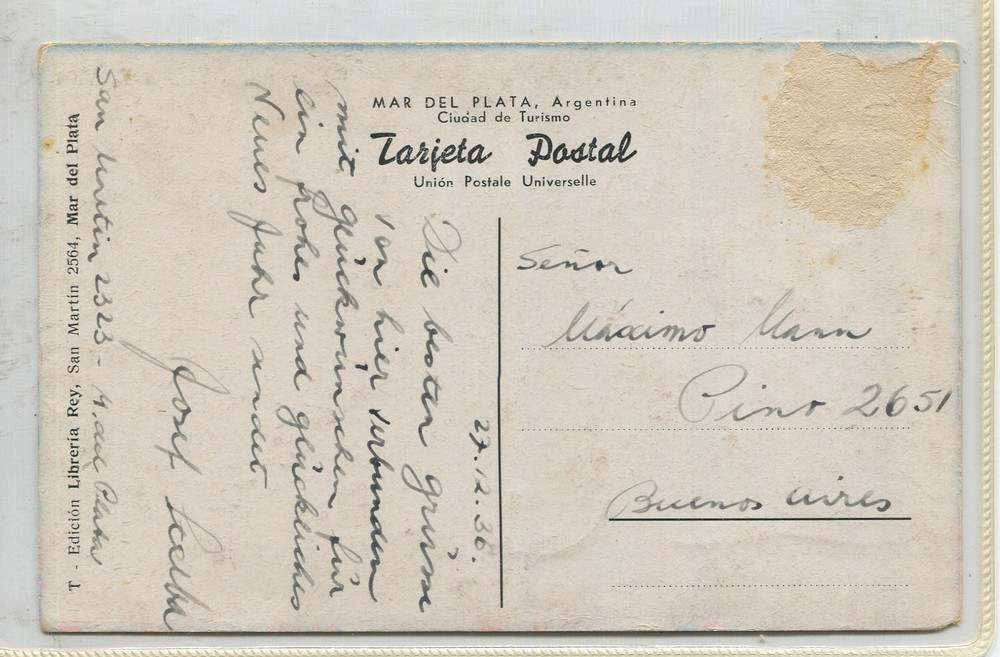 MAR DEL PLATA, Argentina
Ciudad de Turismo
Tarjeta Postal
Unión Postale Universelle
27.12.36.
Die besten grüsse
von hier verbunden
mit glückwünschen für
ein frohes und glückliches
Neues Jahr sendet
Josef
San Martin 2323 - M. del Plata
T - Edición Librería Rey, San Martín 2564, Mar del Plata
Señor
Máximo Mann
Pino 2651
Buenos Aires